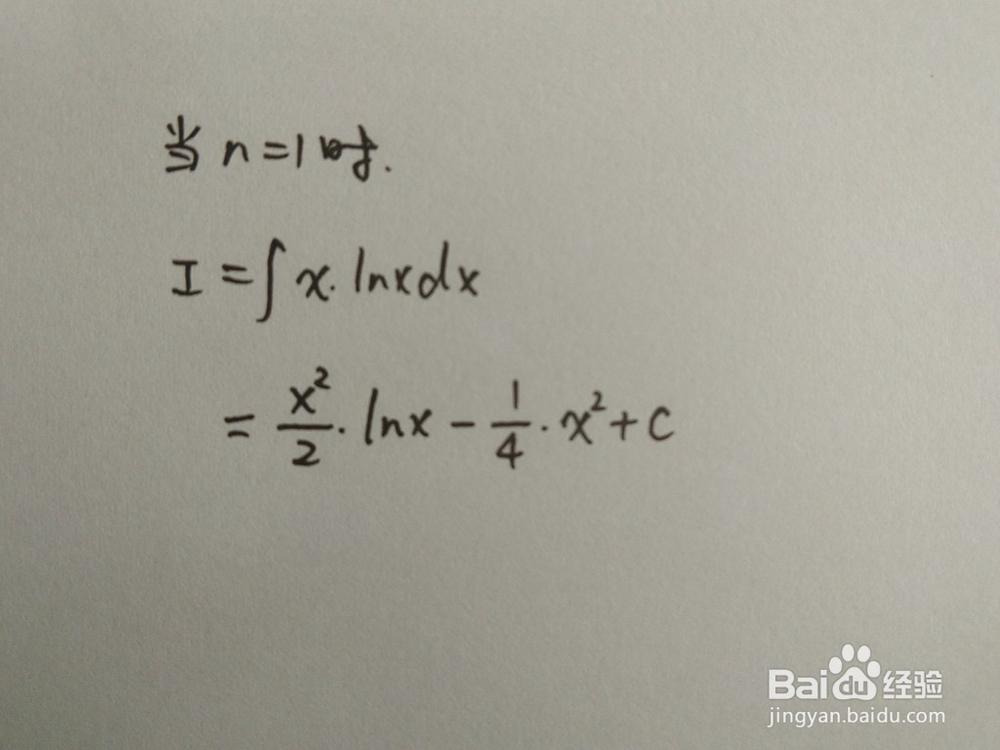 当 n=1时.
I = ∫ x · lnx dx
= x²/2 · lnx - 1/4 · x² + C
Baidu 经验
jingyan.baidu.com